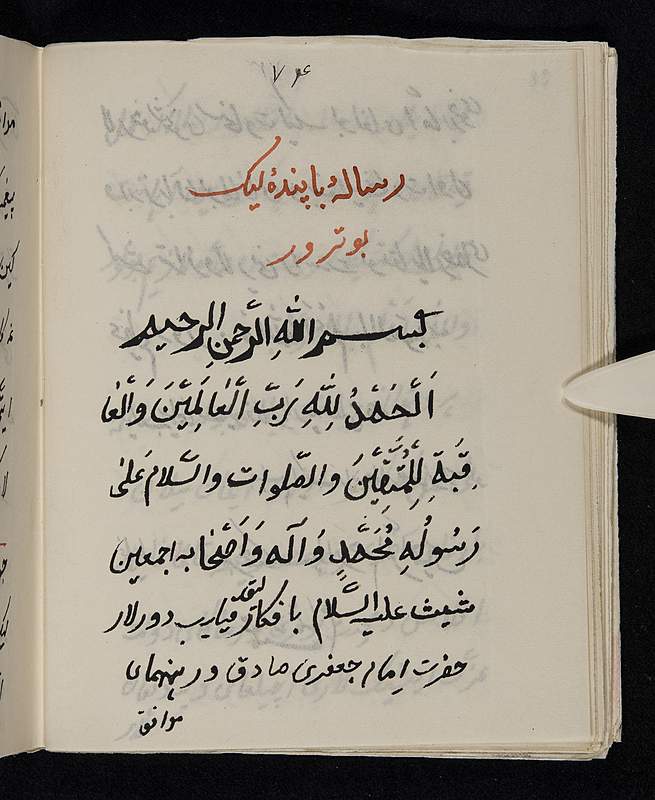 رسالهٔ باپندهٔ لیک
بوترور
بسم اللهِ الرَّحمنِ الرحیم
اَلْحَمْدُ لِلّهِ رَبِّ الْعَالَمِیْنَ وَالْعَا
قِبَةِ لِلْمُتَّقِیْنَ والصّلوات والسَّلام عَلیٰ
رَسُولُهِ مُحَمَّدٍ وَآله وَاَصْحَابه اجمعین
شیث علیه السَّلام دورلار
حضرت اِمام جعفری صادق
موافق